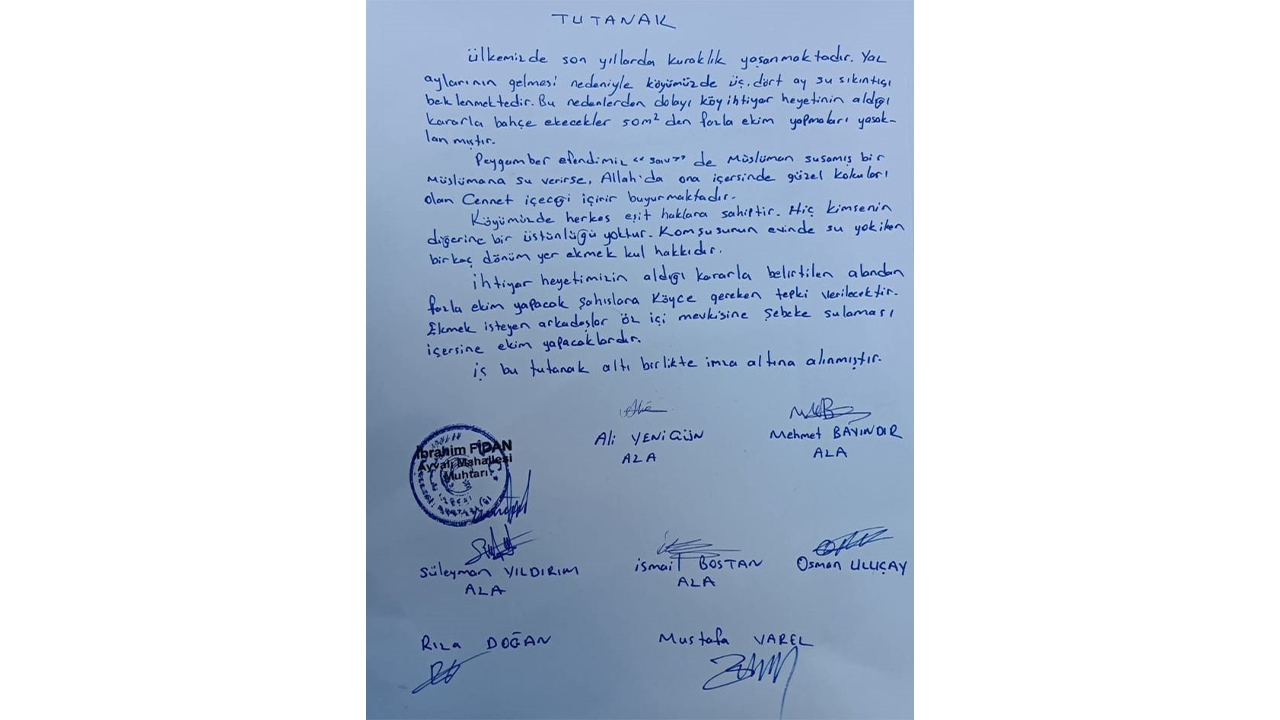 TUTANAK
Ülkemizde son yıllarda kuraklık yaşanmaktadır. Yaz
aylarının gelmesi nedeniyle köyümüzde üç.dört ay su sıkıntıçı
beklenmektedir. Bu nedenlerden dolayı köy ihtiyar heyetinin aldığı
kararla bahçe ekecekler 50m² den fazla ekim yapmaları yasak-
lanmıştır.
Peygamber efendimiz "sav" de Müslüman susamış bir
Müslümana su verirse, Allah'da ona içersinde güzel kokuları
olan Cennet içeceği içirir buyurmaktadır.
Köyümüzde herkes eşit haklara sahiptir. Hiç kimsenin
diğerine bir üstünlüğü yoktur. Komşusunun evinde su yokiken
birkaç dönüm yer ekmek kul hakkıdır.
İhtiyar heyetimizin aldığı kararla belirtilen alandan
fazla ekim yapacak şahıslara Köyce gereken tepki verilecektir.
Ekmek isteyen arkadaşlar öz içi mevkisine Şebeke sulaması
içersine ekim yapacaklardır.
iş bu tutanak altı birlikte imza altına alınmıştır.
Ali YENİGÜN
AZA
Mehmet BAYINDIR
AZA
İbrahim FİDAN
Ayvalı Mahallesi
Muhtarı
Süleyman YILDIRIM
AZA
İsmail BOSTAN
AZA
Osman ULUÇAY
Rıza DOĞAN
Mustafa VAREL